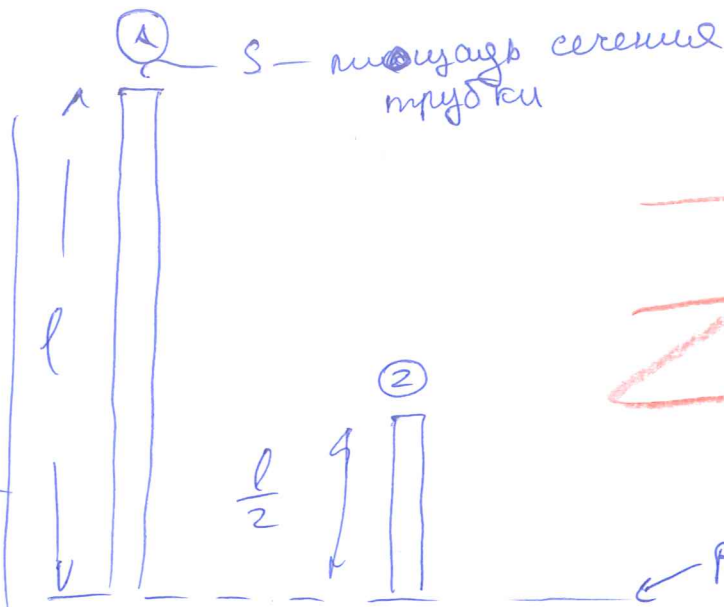 1
S — площадь сечения
трубки
l
2
l/2
P